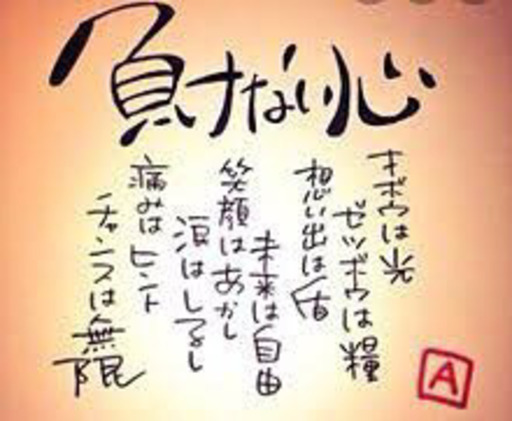 負けない心
キボウは光
ゼツボウは糧
想い出は盾
未来は自由
笑顔はあかし
涙はしるし
痛みはヒント
チャンスは無限
A